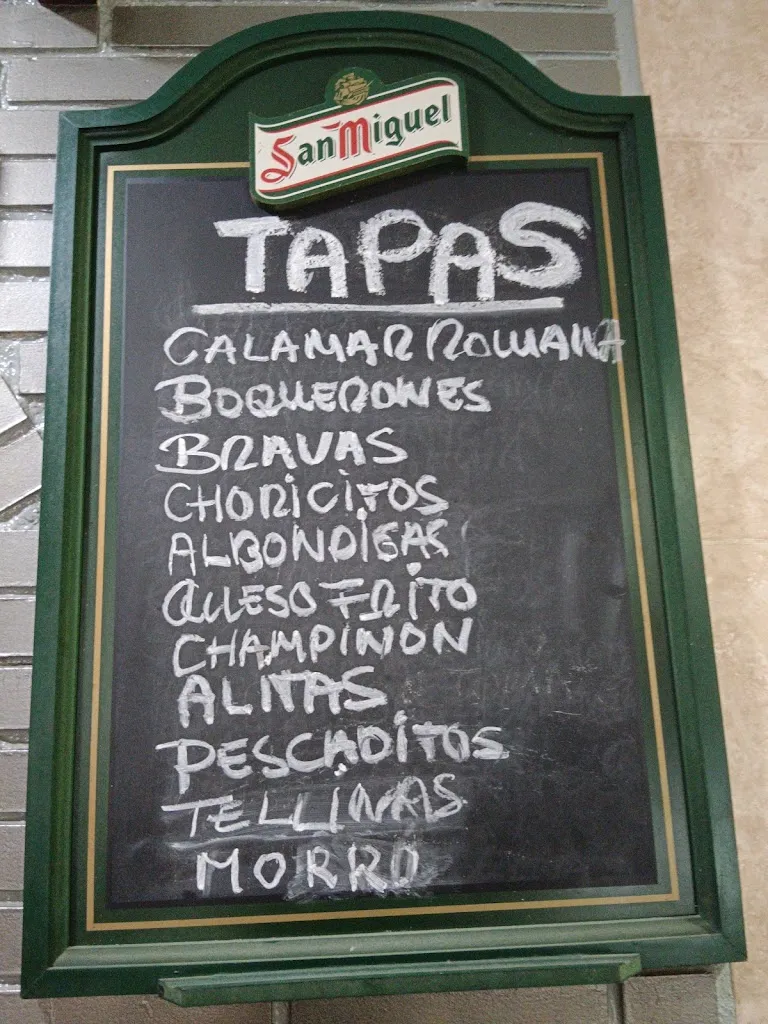 San Miguel
TAPAS
CALAMAR ROMANA
BOQUERONES
BRAVAS
CHORICITOS
ALBONDIGAS
QUESO FRITO
CHAMPINON
ALITAS
PESCADITOS
TELLINAS
MORRO